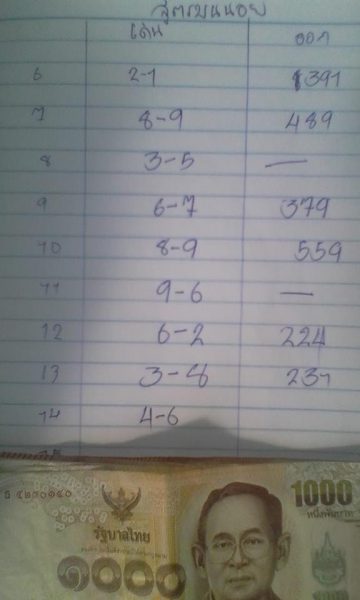 สูตรบนนอย
เด่น ออก
6 2-1 1391
7 8-9 489
8 3-5 —
9 6-7 379
10 8-9 559
11 9-6 —
12 6-2 224
13 3-8 231
14 4-6
15
ธ ๔๒๐๑๙๐
1000
หนึ่งพันบาท
รัฐบาลไทย
๑๐๐๐